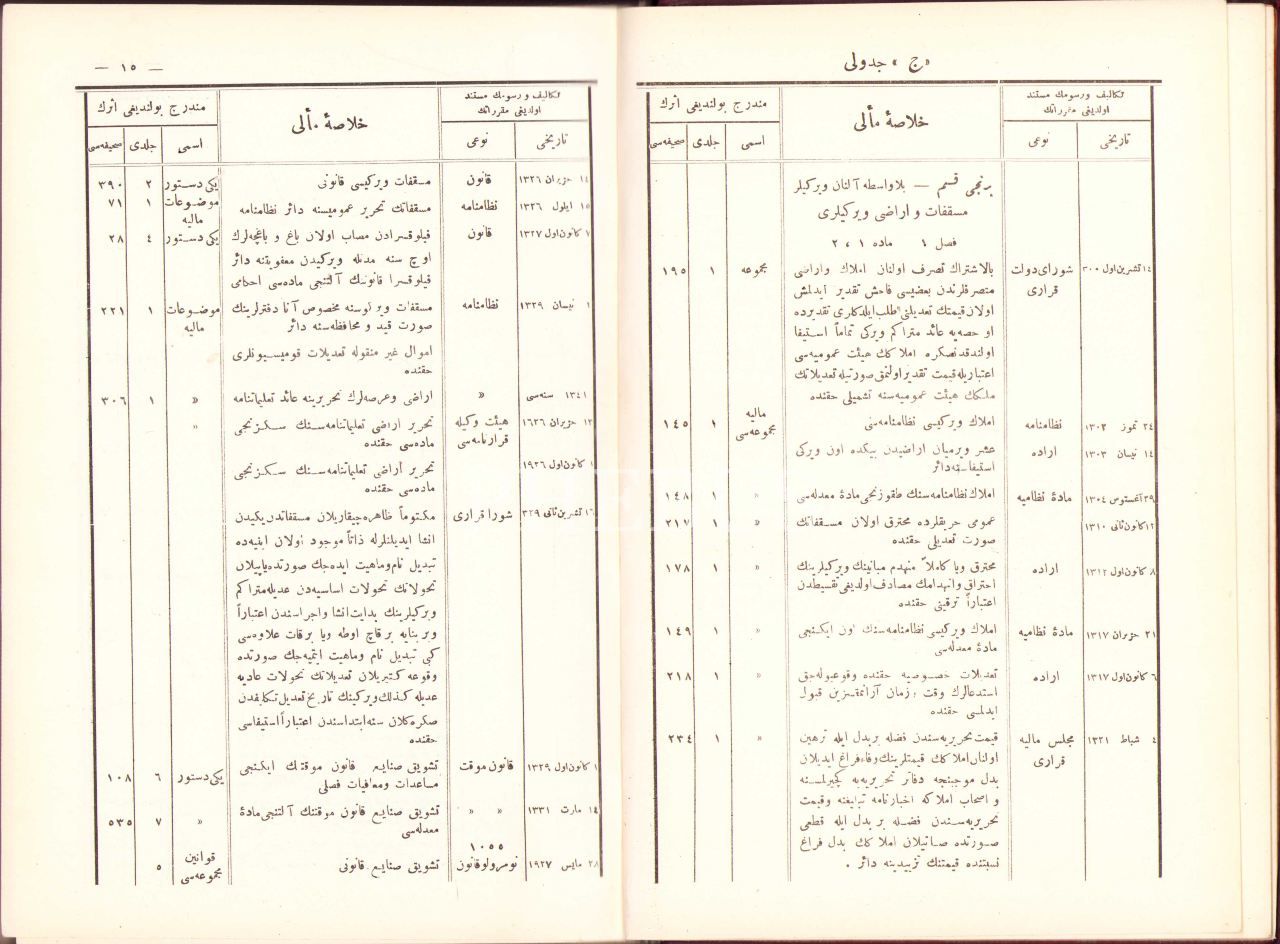 «ج» جدولی
تكالیف و رسومك مستند
اولدیغی مقرراتك
خلاصهٔ مآلی
مندرج بولندیغی اثرك
تاریخی
نوعی
اسمی
جلدی
صحیفه‌سی
برنجی قسم — بلاواسطه آلنان ویركیلر
مسقفات و اراضی ویركیلری
فصل ۱ ماده ۱ ، ۲
۱٤ تشرین اول ۳۰۰ شورای دولت بالاشتراك تصرف اولنان املاك واراضی مجموعه ۱ ۱۹٥
قراری متصرفلرندن بعضیسی فاحش تقدیر ایدلمش
اولان قیمتك تعدیلنی طلب ایلدكلری تقدیرده
او حصه‌یه عائد متراكم ویركی تماماً استیفا
اولندقدنصكره املاكك هیئت عمومیه‌سی
اعتباریله قیمت تقدیر اولنمق صورتیله تعدیلاتك
ملكك هیئت عمومیه‌سنه تشمیلی حقنده
۲٤ تموز ۱۳۰۲ نظامنامه املاك ویركیسی نظامنامه‌سی مالیه مجموعه‌سی ۱ ۱٤٥
۱٤ نیسان ۱۳۰۳ اراده عشر ویرمیان اراضیدن بیكده اون ویركی
استیفاسنه دائر
۲۹ آغستوس ۱۳۰٤ مادهٔ نظامیه املاك نظامنامه‌سنك طقوزنجی مادهٔ معدله‌سی » ۱ ۱٤۸
۱۲ كانون ثانی ۱۳۱۰ عمومی حریقلرده محترق اولان مسقفاتك » ۱ ۲۱۷
صورت تعدیلی حقنده
۸ كانون اول ۱۳۱۲ اراده محترق ویا كاملاً منهدم مبانینك ویركیلرینك » ۱ ۱۷۸
احتراق وانهدامك مصادف اولدیغی تقسیطدن
اعتباراً ترقینی حقنده
۲۱ حزیران ۱۳۱۷ مادهٔ نظامیه املاك ویركیسی نظامنامه‌سنك اون ایكنجی » ۱ ۱٤۹
مادهٔ معدله‌سی
٦ كانون اول ۱۳۱۷ اراده تعدیلات خصوصیه حقنده وقوعبوله‌جق » ۱ ۲۱۸
استدعالرك وقت و زمان آرانمقسزین قبول
ایدلمسی حقنده
٤ شباط ۱۳۲۱ مجلس مالیه قیمت تحریریه‌سندن فضله بر بدل ایله ترهین » ۱ ۲۳٤
قراری اولنان املاكك قیمتلرینك وفاءً فراغ ایدیلان
بدل موجبنجه دفاتر تحریریه‌یه كچیرلمسنه
و اصحاب املاكه اخبارنامه تبلیغنه وقیمت
تحریریه‌سندن فضله بر بدل ایله قطعی
صورتده صاتیلان املاكك بدل فراغ
نسبتنده قیمتنك تزییدینه دائر .
— ۱٥ —
تكالیف و رسومك مستند
اولدیغی مقرراتك
خلاصهٔ مآلی
مندرج بولندیغی اثرك
تاریخی
نوعی
اسمی
جلدی
صحیفه‌سی
۱٤ حزیران ۱۳۲٦ قانون مسقفات ویركیسی قانونی یكی دستور ۲ ۳۹۰
۱٥ ایلول ۱۳۲٦ نظامنامه مسقفاتك تحریر عمومیسنه دائر نظامنامه موضوعات مالیه ۱ ۷۱
۷ كانون اول ۱۳۲۷ قانون فیلوقسرادن مصاب اولان باغ و باغچه‌لرك یكی دستور ٤ ۲۸
اوچ سنه مدتله ویركیدن معفویتنه دائر
فیلوقسرا قانوننك آلتنجی ماده‌سی احكامی
۱ نیسان ۱۳۲۹ نظامنامه مسقفات ویركوسنه مخصوص آنا دفترلرینك موضوعات مالیه ۱ ۲۲۱
صورت قید و محافظه‌سنه دائر
اموال غیر منقوله تعدیلات قومیسیونلری
حقنده
۱۳٤۱ سنه‌سی » اراضی وعرصه‌لرك تحریرینه عائد تعلیماتنامه » ۱ ۳۰٦
۱۲ حزیران ۱٦۲٦ هیئت وكیله تحریر اراضی تعلیماتنامه‌سنك سكزنجی »
قرارنامه‌سی ماده‌سی حقنده
۱ كانون اول ۱۹۲٦ تحریر اراضی تعلیماتنامه‌سنك سكزنجی
ماده‌سی حقنده
۱٦ تشرین ثانی ۳۲۹ شورا قراری مكتوماً ظاهره چیقاریلان مسقفاتدن یكیدن
انشا ایدیلنلرله ذاتاً موجود اولان ابنیه‌ده
تبدیل نام وماهیت ایده‌جك صورتده یاپیلان
تحولاتك تحولات اساسیه‌دن عدیله متراكم
ویركیلرینك بدایت انشا واجراسندن اعتباراً
وبر بنایه برقاچ اوطه ویا برقات علاوه‌سی
كبی تبدیل نام وماهیت ایتمیه‌جك صورتده
وقوعه كتیریلان تعدیلاتك تحولات عادیه
عدیله كذلك ویركینك تاریخ تعدیل
صكره كلان سنه ابتداسندن اعتباراً استیفاسی
حقنده
۱ كانون اول ۱۳۲۹ قانون موقت تشویق صنایع قانون موقتك ایكنجی یكی دستور ٦ ۱۰۸
مساعدات ومعافیات فصلی
۱٤ مارت ۱۳۳۱ » » تشویق صنایع قانون موقتنك آلتنجی مادهٔ » ۷ ٥۳٥
معدله‌سی
۲۸ مایس ۱۹۲۷ ۱۰٥٥ نومرولو قانون تشویق صنایع قانونی قوانین مجموعه‌سی ٥